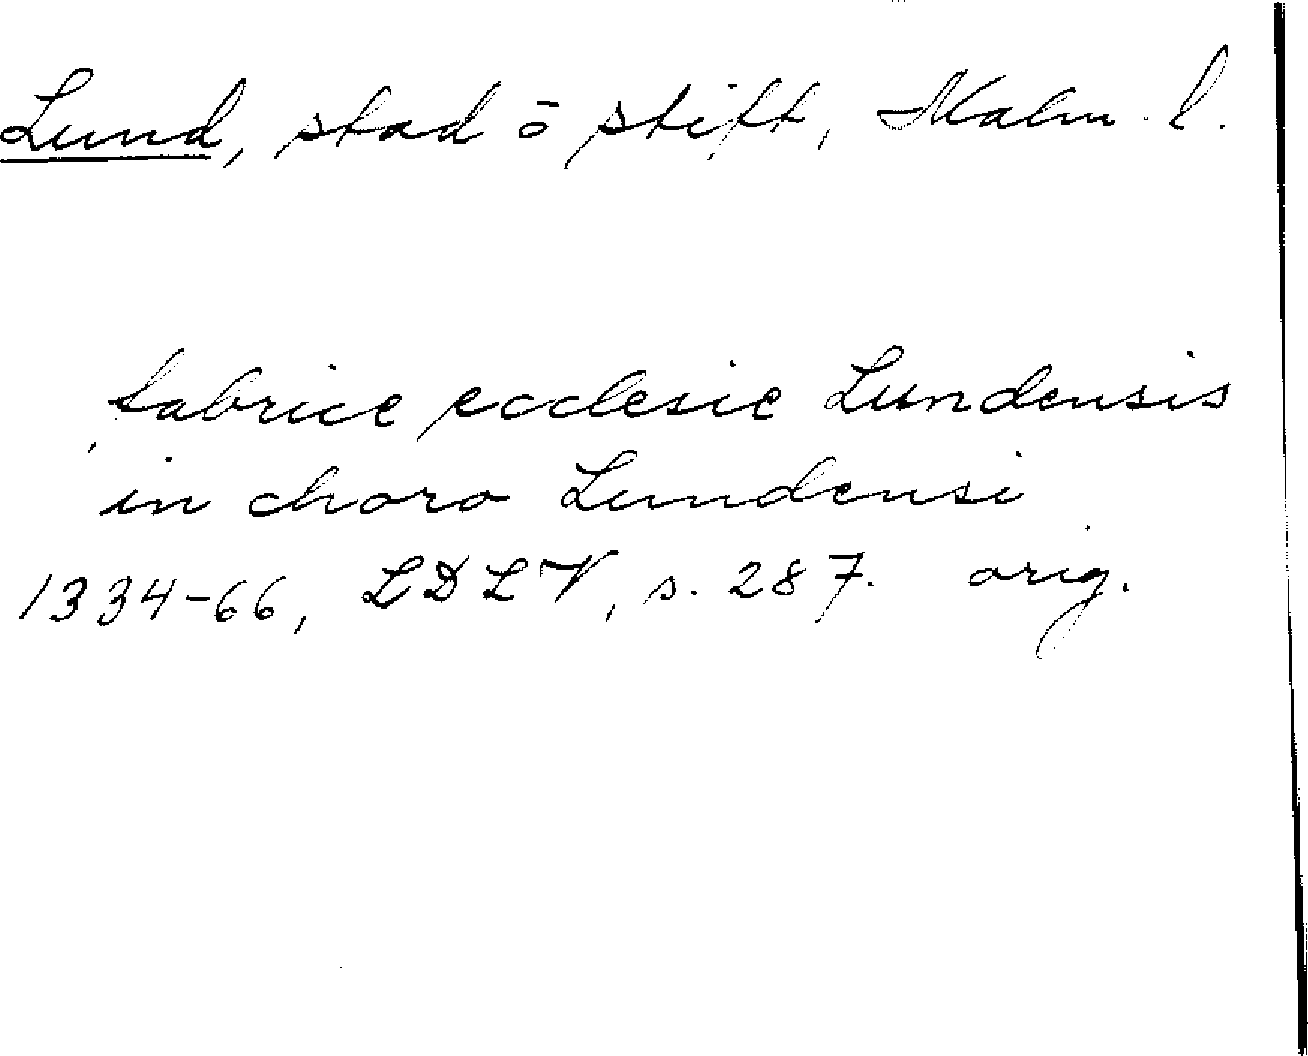 Lund, stad o stift, Malm. l.
fabrice ecclesie Lundensis
in choro Lundensi
1334-66, LDLV, s. 287. orig.